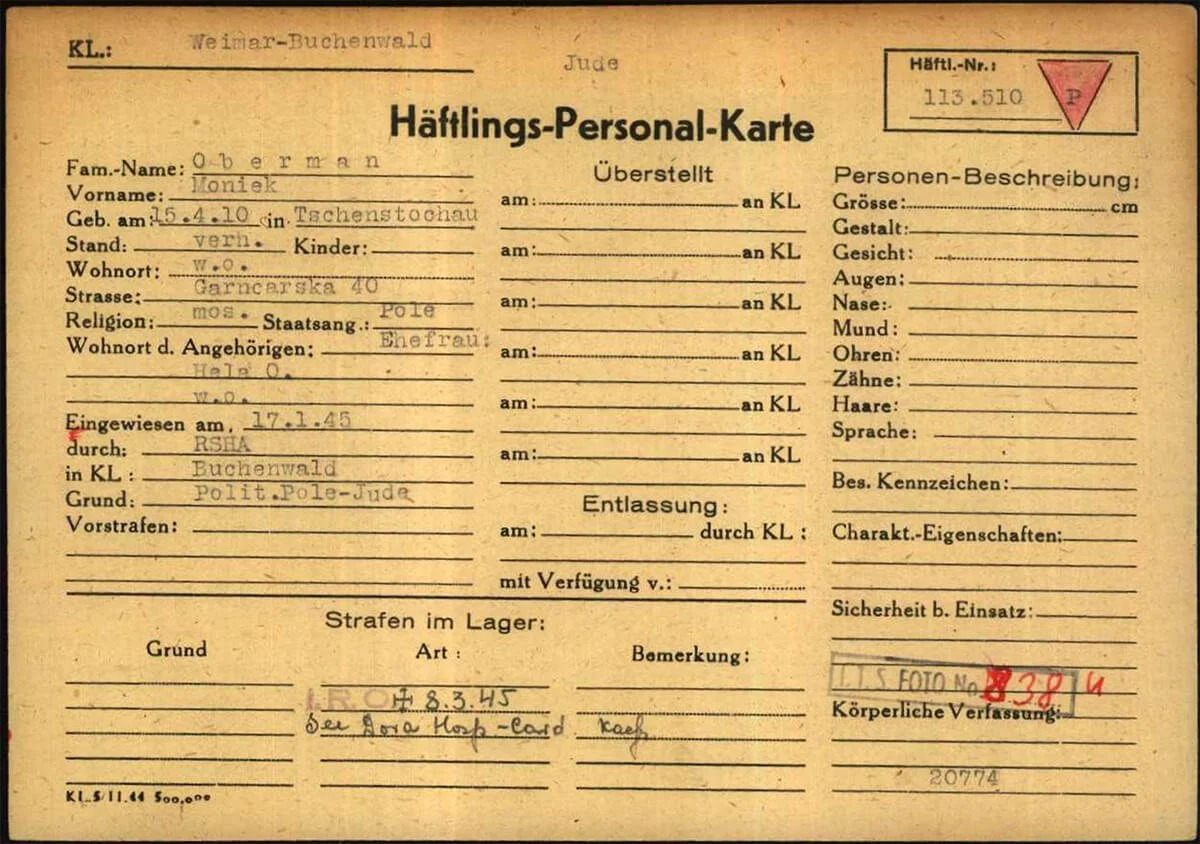 KL.: Weimar-Buchenwald
Jude
Häftl.-Nr.:
113.510 P
Häftlings-Personal-Karte
Fam.-Name: Oberman
Vorname: Moniek
Geb. am: 15.4.10 in Tschenstochau
Stand: verh. Kinder:
Wohnort: w.o.
Strasse: Garncarska 40
Religion: mos. Staatsang.: Pole
Wohnort d. Angehörigen: Ehefrau:
Hala O.
w.o.
Eingewiesen am: 17.1.45
durch: RSHA
in KL: Buchenwald
Grund: Polit.Pole-Jude
Vorstrafen:
Überstellt
am: an KL
am: an KL
am: an KL
am: an KL
am: an KL
am: an KL
Entlassung:
am: durch KL:
mit Verfügung v.:
Personen-Beschreibung:
Grösse: cm
Gestalt:
Gesicht:
Augen:
Nase:
Mund:
Ohren:
Zähne:
Haare:
Sprache:
Bes. Kennzeichen:
Charakt.-Eigenschaften:
Sicherheit b. Einsatz:
I.T.S FOTO No 38
Körperliche Verfassung:
20774
Strafen im Lager:
Grund Art: Bemerkung:
I.R.O. 8.3.45
See Dora Hosp-Card
KL 5/11.44 500.000